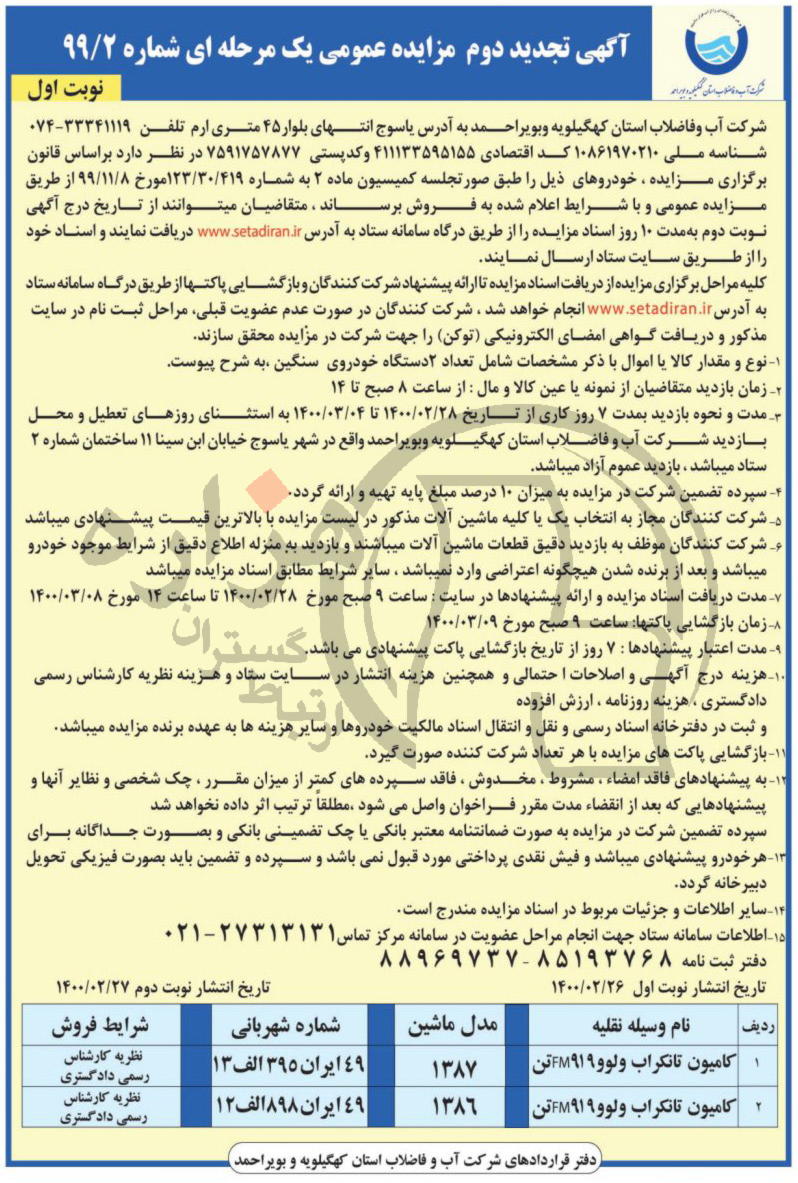 آگهی تجدید دوم مزایده عمومی یک مرحله ای شماره ۹۹/۲
شرکت آب و فاضلاب استان کهگیلویه و بویراحمد
نوبت اول
شرکت آب وفاضلاب استان کهگیلویه وبویراحمد به آدرس یاسوج انتهای بلوار۴۵ متری ارم تلفن ۳۳۳۴۱۱۱۹-۰۷۴
شناسه ملی ۱۰۸۶۱۹۷۰۲۱۰ کد اقتصادی ۴۱۱۱۳۳۵۹۵۱۵۵ وکدپستی ۷۵۹۱۷۵۷۸۷۷ در نظر دارد براساس قانون
برگزاری مزایده ، خودروهای ذیل را طبق صورتجلسه کمیسیون ماده ۲ به شماره ۱۲۳/۳۰/۴۱۹مورخ ۹۹/۱۱/۸ از طریق
مزایده عمومی و با شرایط اعلام شده به فروش برساند ، متقاضیان میتوانند از تاریخ درج آگهی
نوبت دوم به‌مدت ۱۰ روز اسناد مزایده را از طریق درگاه سامانه ستاد به آدرس www.setadiran.ir دریافت نمایند و اسناد خود
را از طریق سایت ستاد ارسال نمایند.
کلیه مراحل برگزاری مزایده از دریافت اسناد مزایده تا ارائه پیشنهاد شرکت کنندگان و بازگشایی پاکتها از طریق درگاه سامانه ستاد
به آدرس www.setadiran.ir انجام خواهد شد ، شرکت کنندگان در صورت عدم عضویت قبلی، مراحل ثبت نام در سایت
مذکور و دریافت گواهی امضای الکترونیکی (توکن) را جهت شرکت در مزایده محقق سازند.
۱- نوع و مقدار کالا یا اموال با ذکر مشخصات شامل تعداد ۲دستگاه خودروی سنگین ،به شرح پیوست.
۲- زمان بازدید متقاضیان از نمونه یا عین کالا و مال : از ساعت ۸ صبح تا ۱۴
۳- مدت و نحوه بازدید بمدت ۷ روز کاری از تاریخ ۱۴۰۰/۰۲/۲۸ تا ۱۴۰۰/۰۳/۰۴ به استثنای روزهای تعطیل و محل
بازدید شرکت آب و فاضلاب استان کهگیلویه وبویراحمد واقع در شهر یاسوج خیابان ابن سینا ۱۱ ساختمان شماره ۲
ستاد میباشد ، بازدید عموم آزاد میباشد.
۴- سپرده تضمین شرکت در مزایده به میزان ۱۰ درصد مبلغ پایه تهیه و ارائه گردد.
۵- شرکت کنندگان مجاز به انتخاب یک یا کلیه ماشین آلات مذکور در لیست مزایده با بالاترین قیمت پیشنهادی میباشد
۶- شرکت کنندگان موظف به بازدید دقیق قطعات ماشین آلات میباشند و بازدید به منزله اطلاع دقیق از شرایط موجود خودرو
میباشد و بعد از برنده شدن هیچگونه اعتراضی وارد نمیباشد ، سایر شرایط مطابق اسناد مزایده میباشد
۷- مدت دریافت اسناد مزایده و ارائه پیشنهادها در سایت : ساعت ۹ صبح مورخ ۱۴۰۰/۰۲/۲۸ تا ساعت ۱۴ مورخ ۱۴۰۰/۰۳/۰۸
۸- زمان بازگشایی پاکتها: ساعت ۹ صبح مورخ ۱۴۰۰/۰۳/۰۹
۹- مدت اعتبار پیشنهادها : ۷ روز از تاریخ بازگشایی پاکت پیشنهادی می باشد.
۱۰- هزینه درج آگهی و اصلاحات ا حتمالی و همچنین هزینه انتشار در سایت ستاد و هزینه نظریه کارشناس رسمی
دادگستری ، هزینه روزنامه ، ارزش افزوده
و ثبت در دفترخانه اسناد رسمی و نقل و انتقال اسناد مالکیت خودروها و سایر هزینه ها به عهده برنده مزایده میباشد.
۱۱- بازگشایی پاکت های مزایده با هر تعداد شرکت کننده صورت گیرد.
۱۲- به پیشنهادهای فاقد امضاء ، مشروط ، مخدوش ، فاقد سپرده های کمتر از میزان مقرر ، چک شخصی و نظایر آنها و
پیشنهادهایی که بعد از انقضاء مدت مقرر فراخوان واصل می شود ،مطلقاً ترتیب اثر داده نخواهد شد
سپرده تضمین شرکت در مزایده به صورت ضمانتنامه معتبر بانکی یا چک تضمینی بانکی و بصورت جداگانه برای
۱۳- هرخودرو پیشنهادی میباشد و فیش نقدی پرداختی مورد قبول نمی باشد و سپرده و تضمین باید بصورت فیزیکی تحویل
دبیرخانه گردد.
۱۴- سایر اطلاعات و جزئیات مربوط در اسناد مزایده مندرج است.
۱۵- اطلاعات سامانه ستاد جهت انجام مراحل عضویت در سامانه مرکز تماس ۲۷۳۱۳۱۳۱-۰۲۱
دفتر ثبت نامه ۸۵۱۹۳۷۶۸ - ۸۸۹۶۹۷۳۷
تاریخ انتشار نوبت اول ۱۴۰۰/۰۲/۲۶ تاریخ انتشار نوبت دوم ۱۴۰۰/۰۲/۲۷
ردیف نام وسیله نقلیه مدل ماشین شماره شهربانی شرایط فروش
۱ کامیون تانکراب ولوو FM۹۱۹تن ۱۳۸۷ ۴۹ ایران ۳۹۵ الف ۱۳ نظریه کارشناس رسمی دادگستری
۲ کامیون تانکراب ولوو FM۹۱۹تن ۱۳۸۶ ۴۹ ایران ۸۹۸ الف ۱۲ نظریه کارشناس رسمی دادگستری
دفتر قراردادهای شرکت آب و فاضلاب استان کهگیلویه و بویراحمد